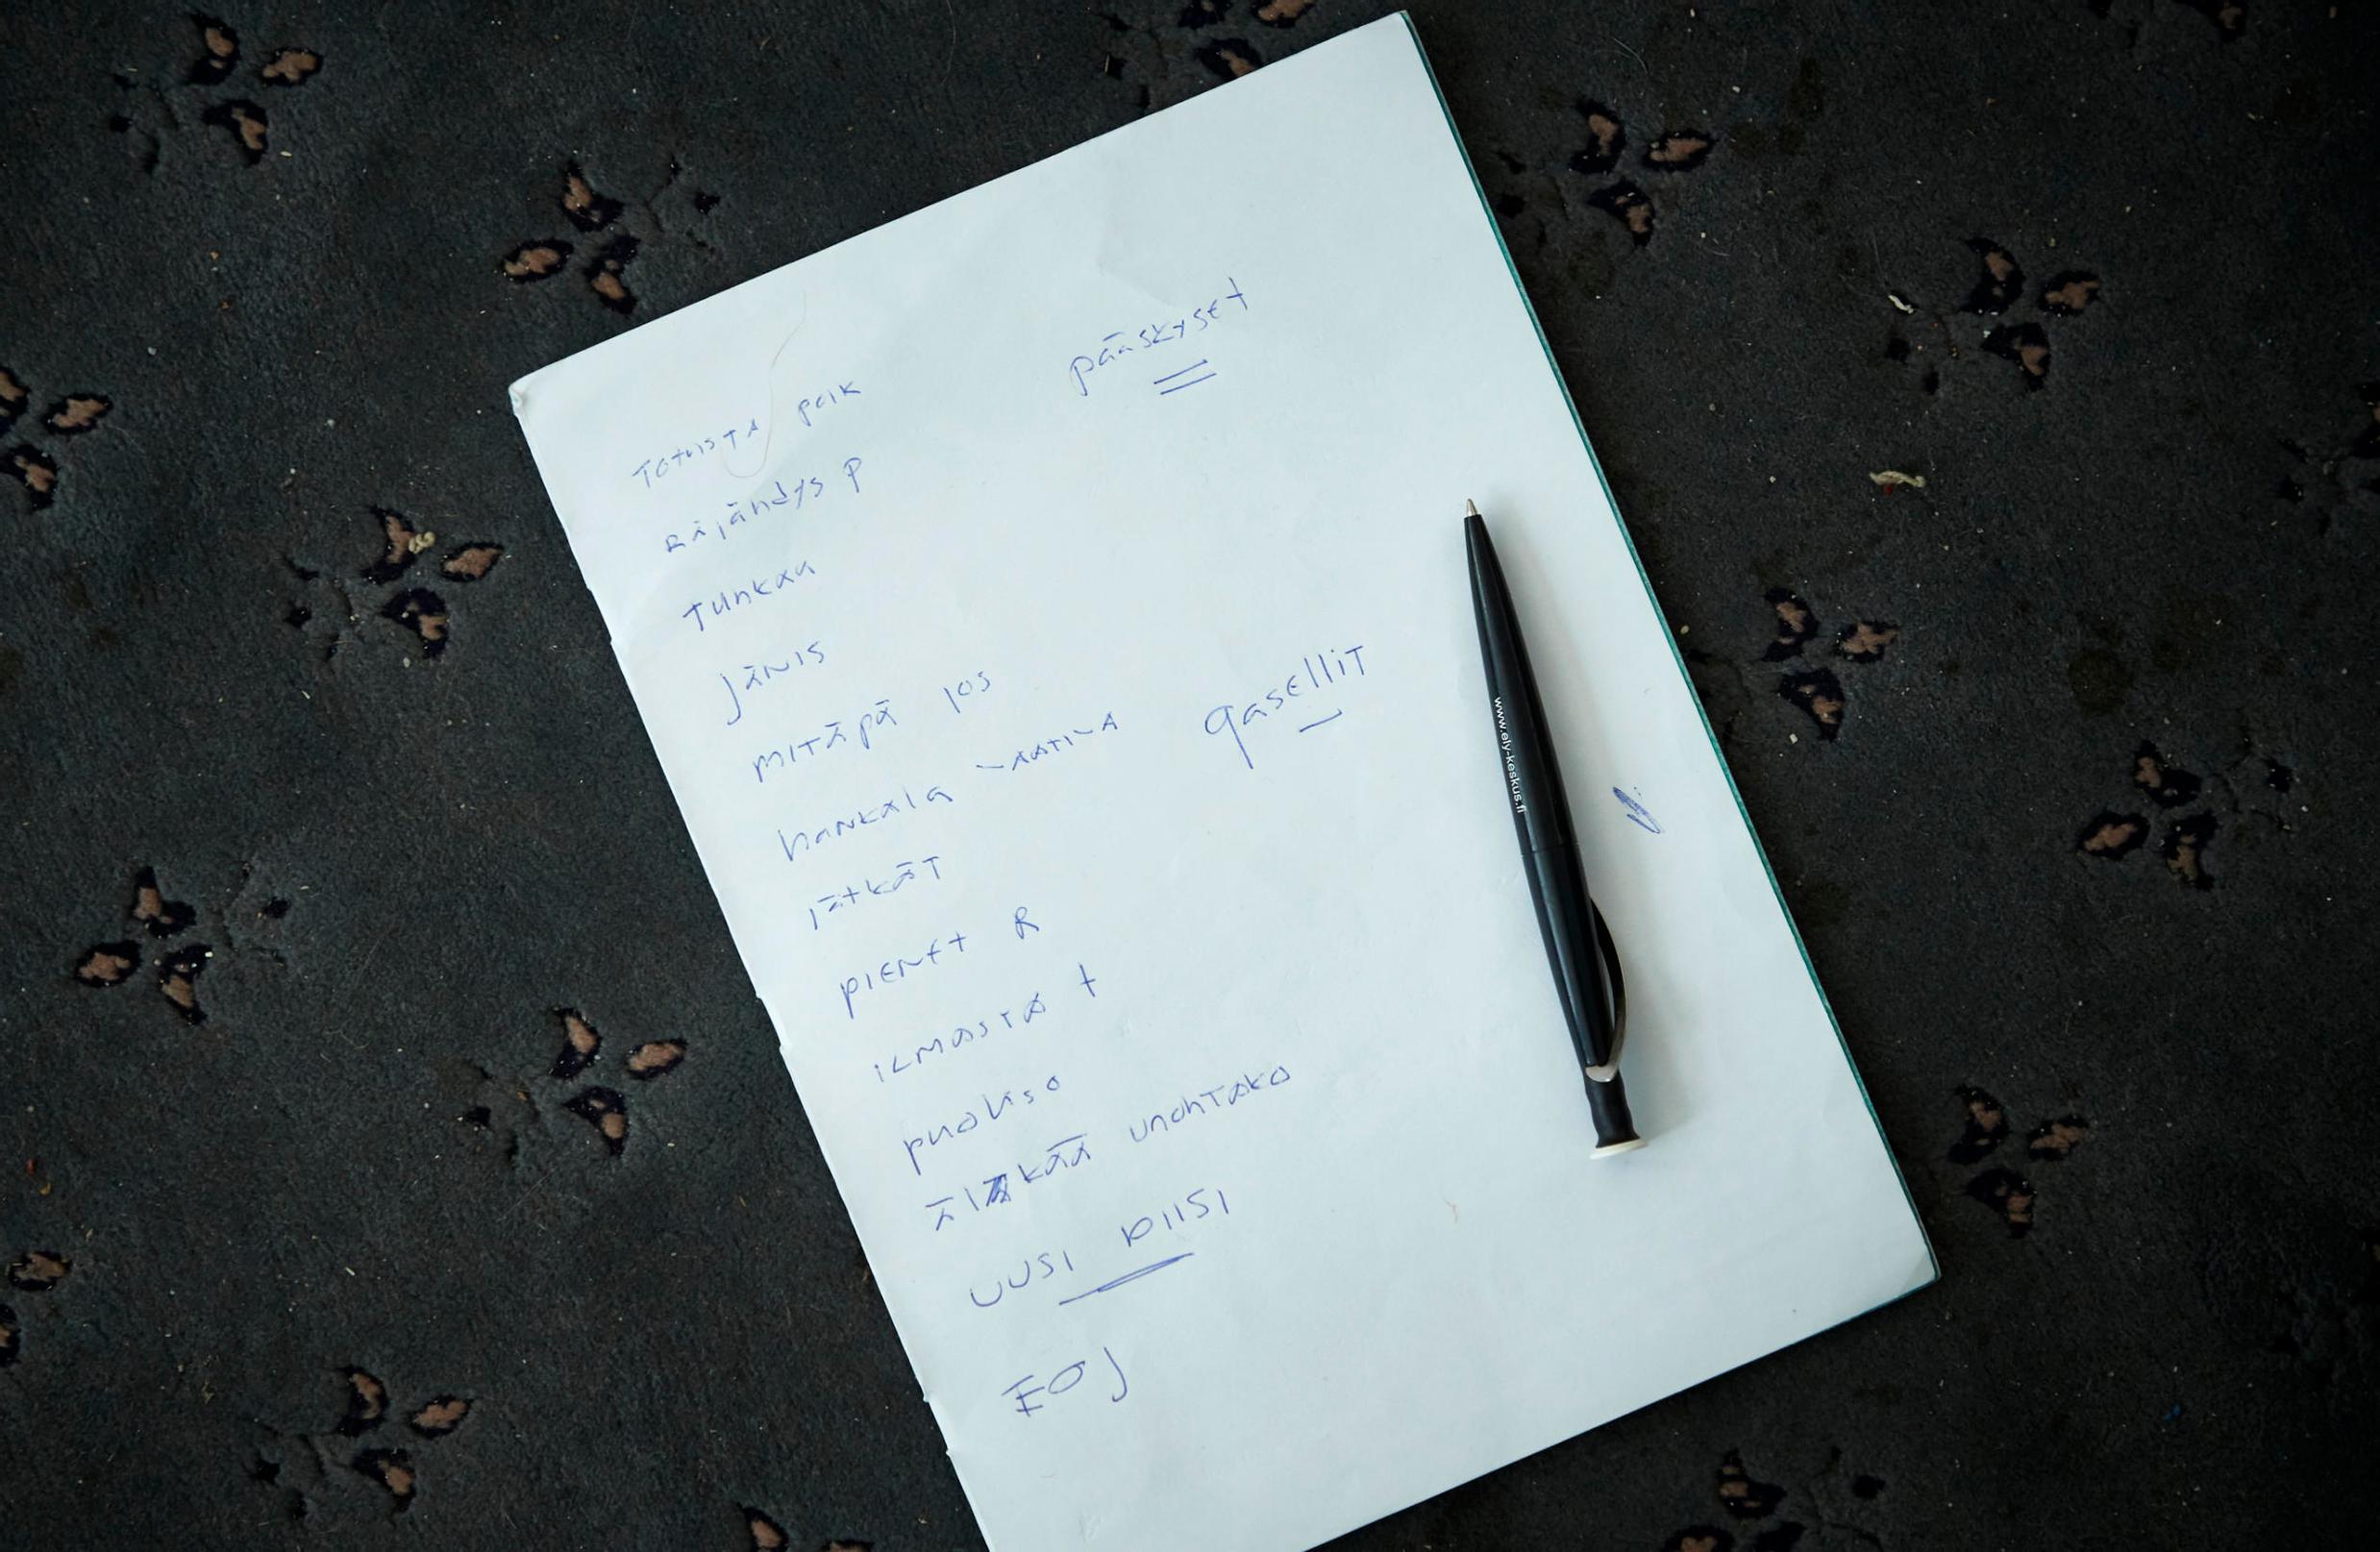 Totuista paik
pääskyset
Räjähdys P
Tunkaa
Jänis
mitäpä jos
hankala
gasellit
jätkät
pienet R
ilmasta t
puoliso
älkää unohtako
uusi biisi
EOJ
www.ely-keskus.fi